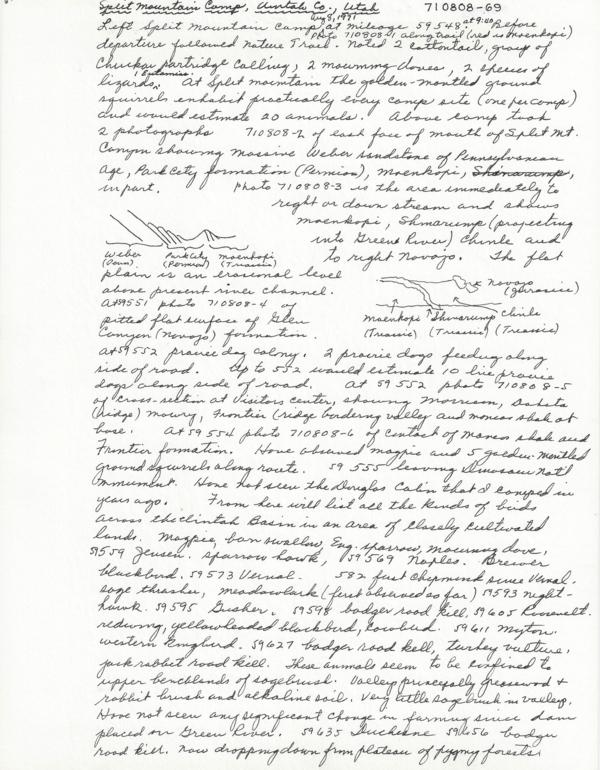 Split Mountain Camp, Uintah Co., Utah 710808-69
Aug 8, 1971 at 9:40
Left Split Mountain Camp at mileage 59548. Before
Photo 710808-1 along trail (red is Moenkopi)
departure followed Nature Trail. Noted 2 cottontail, group of
Chuckar partridge calling, 2 mourning doves, 2 species of
1 Eutamias.
lizards. At Split mountain the golden-mantled ground
squirrels inhabit practically every camp site (one per camp)
and would estimate 20 animals. Above camp took
2 photographs 710808-2 of each face of mouth of Split Mt.
Canyon showing massive Weber sandstone of Pennsylvanian
age, Park City formation (Permian), Moenkopi, Shinarump,
in part. Photo 710808-3 is the area immediately to
right or down stream and shows
Moenkopi, Shinarump (projecting
into Green River) Chinle and
to right Navajo. The flat
Weber Park City Moenkopi
(Penn). (Permian) (Triassic)
plain is an erosional level
above present river channel.
At 59551 photo 710808-4 of
pitted flat surface of Glen
Canyon (Navajo) formation.
Navajo
(Jurassic)
Moenkopi Shinarump Chinle
(Triassic) (Triassic) (Triassic)
At 59552 prairie dog colony. 2 prairie dogs feeding along
side of road. Up to 552 would estimate 10 live prairie
dogs along side of road. At 59552 photo 710808-5
of cross-section at Visitors center, showing Morrison, Dakota
(ridge) Mowry, Frontier (ridge bordering valley and mancos shale at
base. At 59554 photo 710808-6 of contact of Mancos shale and
Frontier formation. Have observed magpie and 5 golden-mantled
ground squirrels along route. 59555 leaving Dinosaur Nat'l
Monument. Have not seen the Douglas Cabin that I camped in
years ago. From here will list all the kinds of birds
across the Uintah Basin in an area of closely cultivated
lands. Magpie, barn swallow, Eng. sparrow, mourning dove,
59559 Jensen. sparrow hawk, 59569 Naples. Brewer
blackbird. 59573 Vernal. 582 first chipmunk since Vernal.
sage thrasher, meadowlark (first observed so far) 59593 night-
hawk. 59595 Gusher. 59598 badger road kill. 59605 Roosevelt.
redwing, yellowheaded blackbird, cowbird. 59611 Myton.
western Kingbird. 59627 badger road kill, turkey vulture.
jack rabbit road kill. These animals seem to be confined to
upper benchlands of sagebrush. Valley principally greasewood +
rabbit brush and alkaline soil. Very little sagebrush in valleys.
Have not seen any significant change in farming since dam
placed on Green River. 59635 Duchesne 59656 badger
road kill. Now dropping down from plateau of pygmy forests.